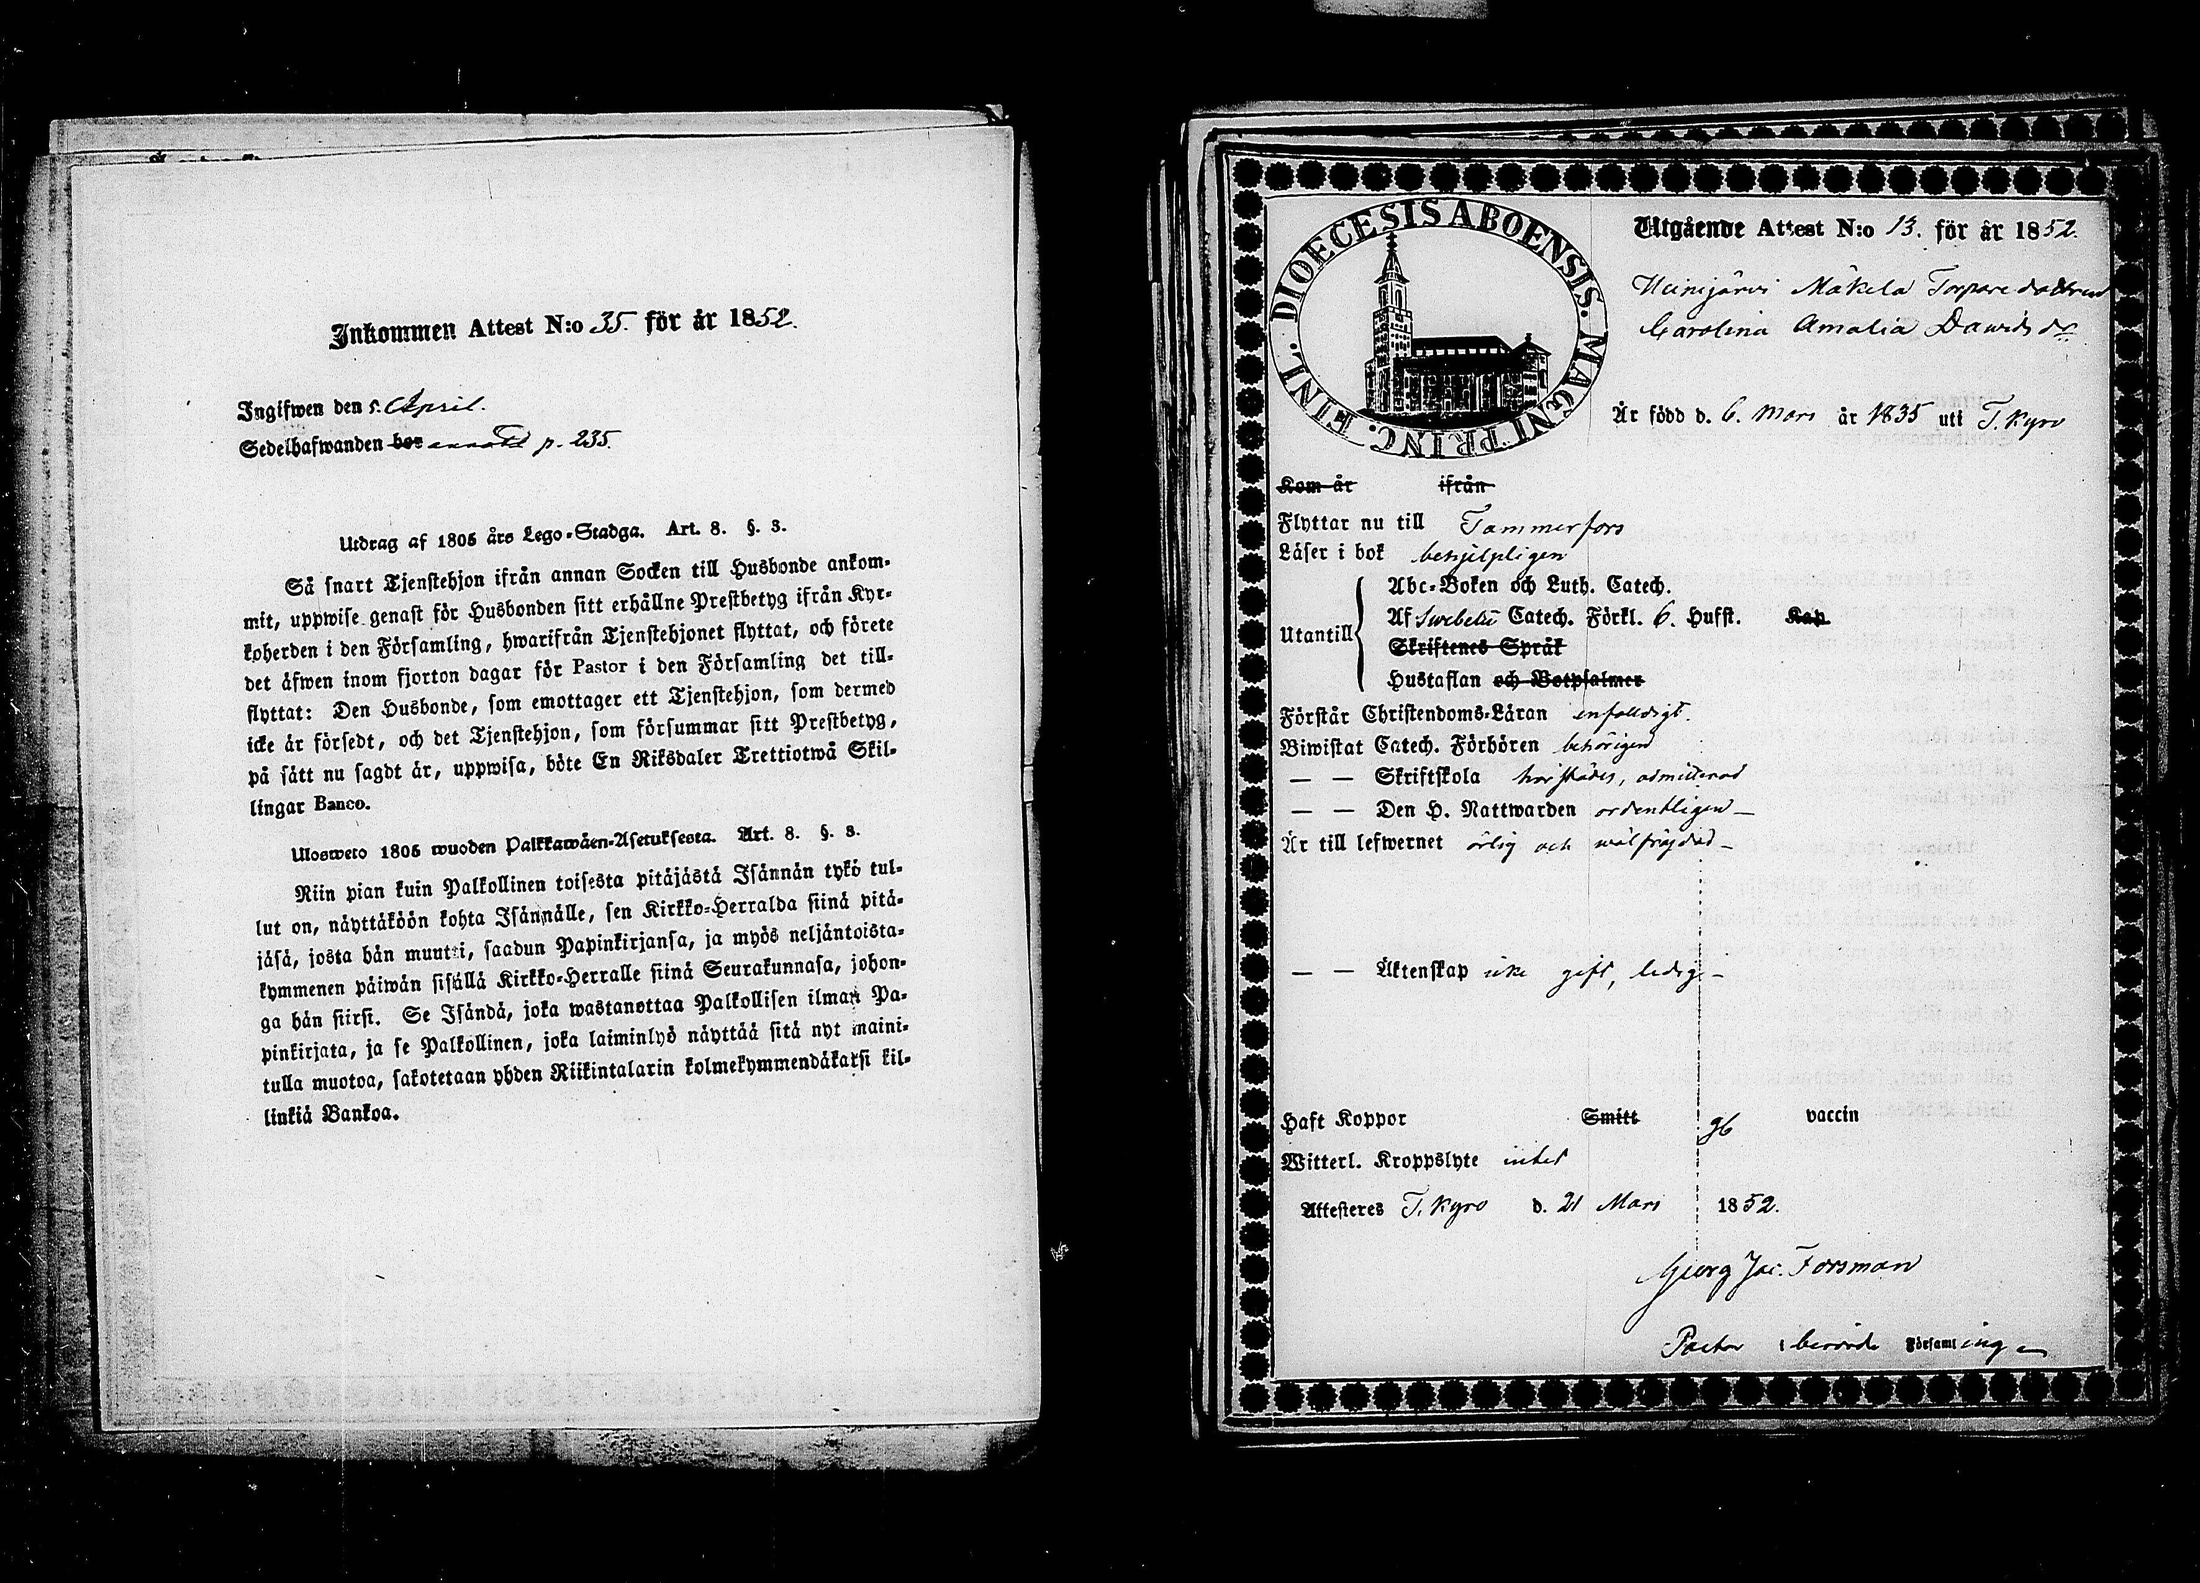 Inkommen Attest N:o 35. för år 1852.
Ingifwen den 5. April.
Sedelhafwanden bor annoted p. 235.
Utdrag af 1805 års Lego-Stadga. Art. 8. §. 3.
Så snart Tjenstehjon ifrån annan Socken till Husbonde ankom-
mit, uppwise genast för Husbonden sitt erhållne Prestbetyg ifrån Kyr-
koherden i den Församling, hwarifrån Tjenstehjonet flyttat, och förete
det äfwen inom fjorton dagar för Pastor i den Församling det till-
flyttat: Den Husbonde, som emottager ett Tjenstehjon, som dermed
icke är försedt, och det Tjenstehjon, som försummar sitt Prestbetyg,
på sätt nu sagdt är, uppwisa, böte En Riksdaler Trettiotwå Skil-
lingar Banco.
Ulosweto 1805 wuoden Palkkawäen-Asetuksesta. Art. 8. §. 3.
Niin pian kuin Palkollinen toisesta pitäjästä Isännän tykö tul-
lut on, näyttäköön kohta Isännälle, sen Kirkko-Herralda siinä pitä-
jäsä, josta hän muutti, saadun Papinkirjansa, ja myös neljäntoista-
kymmenen päiwän sisällä Kirkko-Herralle siinä Seurakunnasa, johon-
ga hän siirsi. Se Isändä, joka wastanottaa Palkollisen ilman Pa-
pinkirjata, ja se Palkollinen, joka laiminlyö näyttää sitä nyt maini-
tulla muotoa, sakotetaan yhden Riikintalarin kolmekymmendäkaksi kil-
linkiä Bankoa.
DIOECESIS ABOENSIS. MAGNI PRINC. FINL.
Utgående Attest N:o 13. för år 1852.
Heinijärvi Mäkelä Torpare dottren
Carolina Amalia Davidsdr
Är född d. 6. Mars år 1835 uti T. Kyro
Kom år ifrån
Flyttar nu till Tammerfors
Läser i bok behjelpligen
Utantill
Abc-Boken och Luth. Catech.
Af Svebelii Catech. Förkl. 6. Hufst. Kap.
Skriftenes Språk
Hustaflan och Botpsalmer
Förstår Christendoms-Läran enfaldigt.
Biwistat Catech. Förhören behörigen
— — Skriftskola härstädes, admitterad
— — Den H. Nattwarden ordentligen —
Är till lefwernet ärlig och wälfräjdad —
— — Äktenskap icke gift, ledig —
Haft Koppor Smitt gb vaccin
Witterl. Kroppslyte intet
Attesteres T. Kyro d. 21 Mars 1852.
Georg Jac. Forsman
Pastor i berörde Församlingen